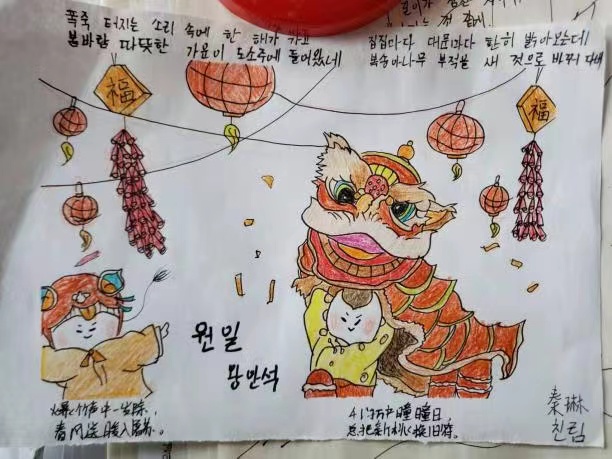 폭죽 터지는 소리 속에 한 해가 가고
봄바람 따뜻한 기운이 도소주에 들어왔네
집집마다 대문마다 환히 밝아오는데
복숭아나무 부적을 새 것으로 바꿔 다네
福
福
원일
왕안석
爆竹声中一岁除，
春风送暖入屠苏。
千门万户曈曈日，
总把新桃换旧符。
秦琳
친림